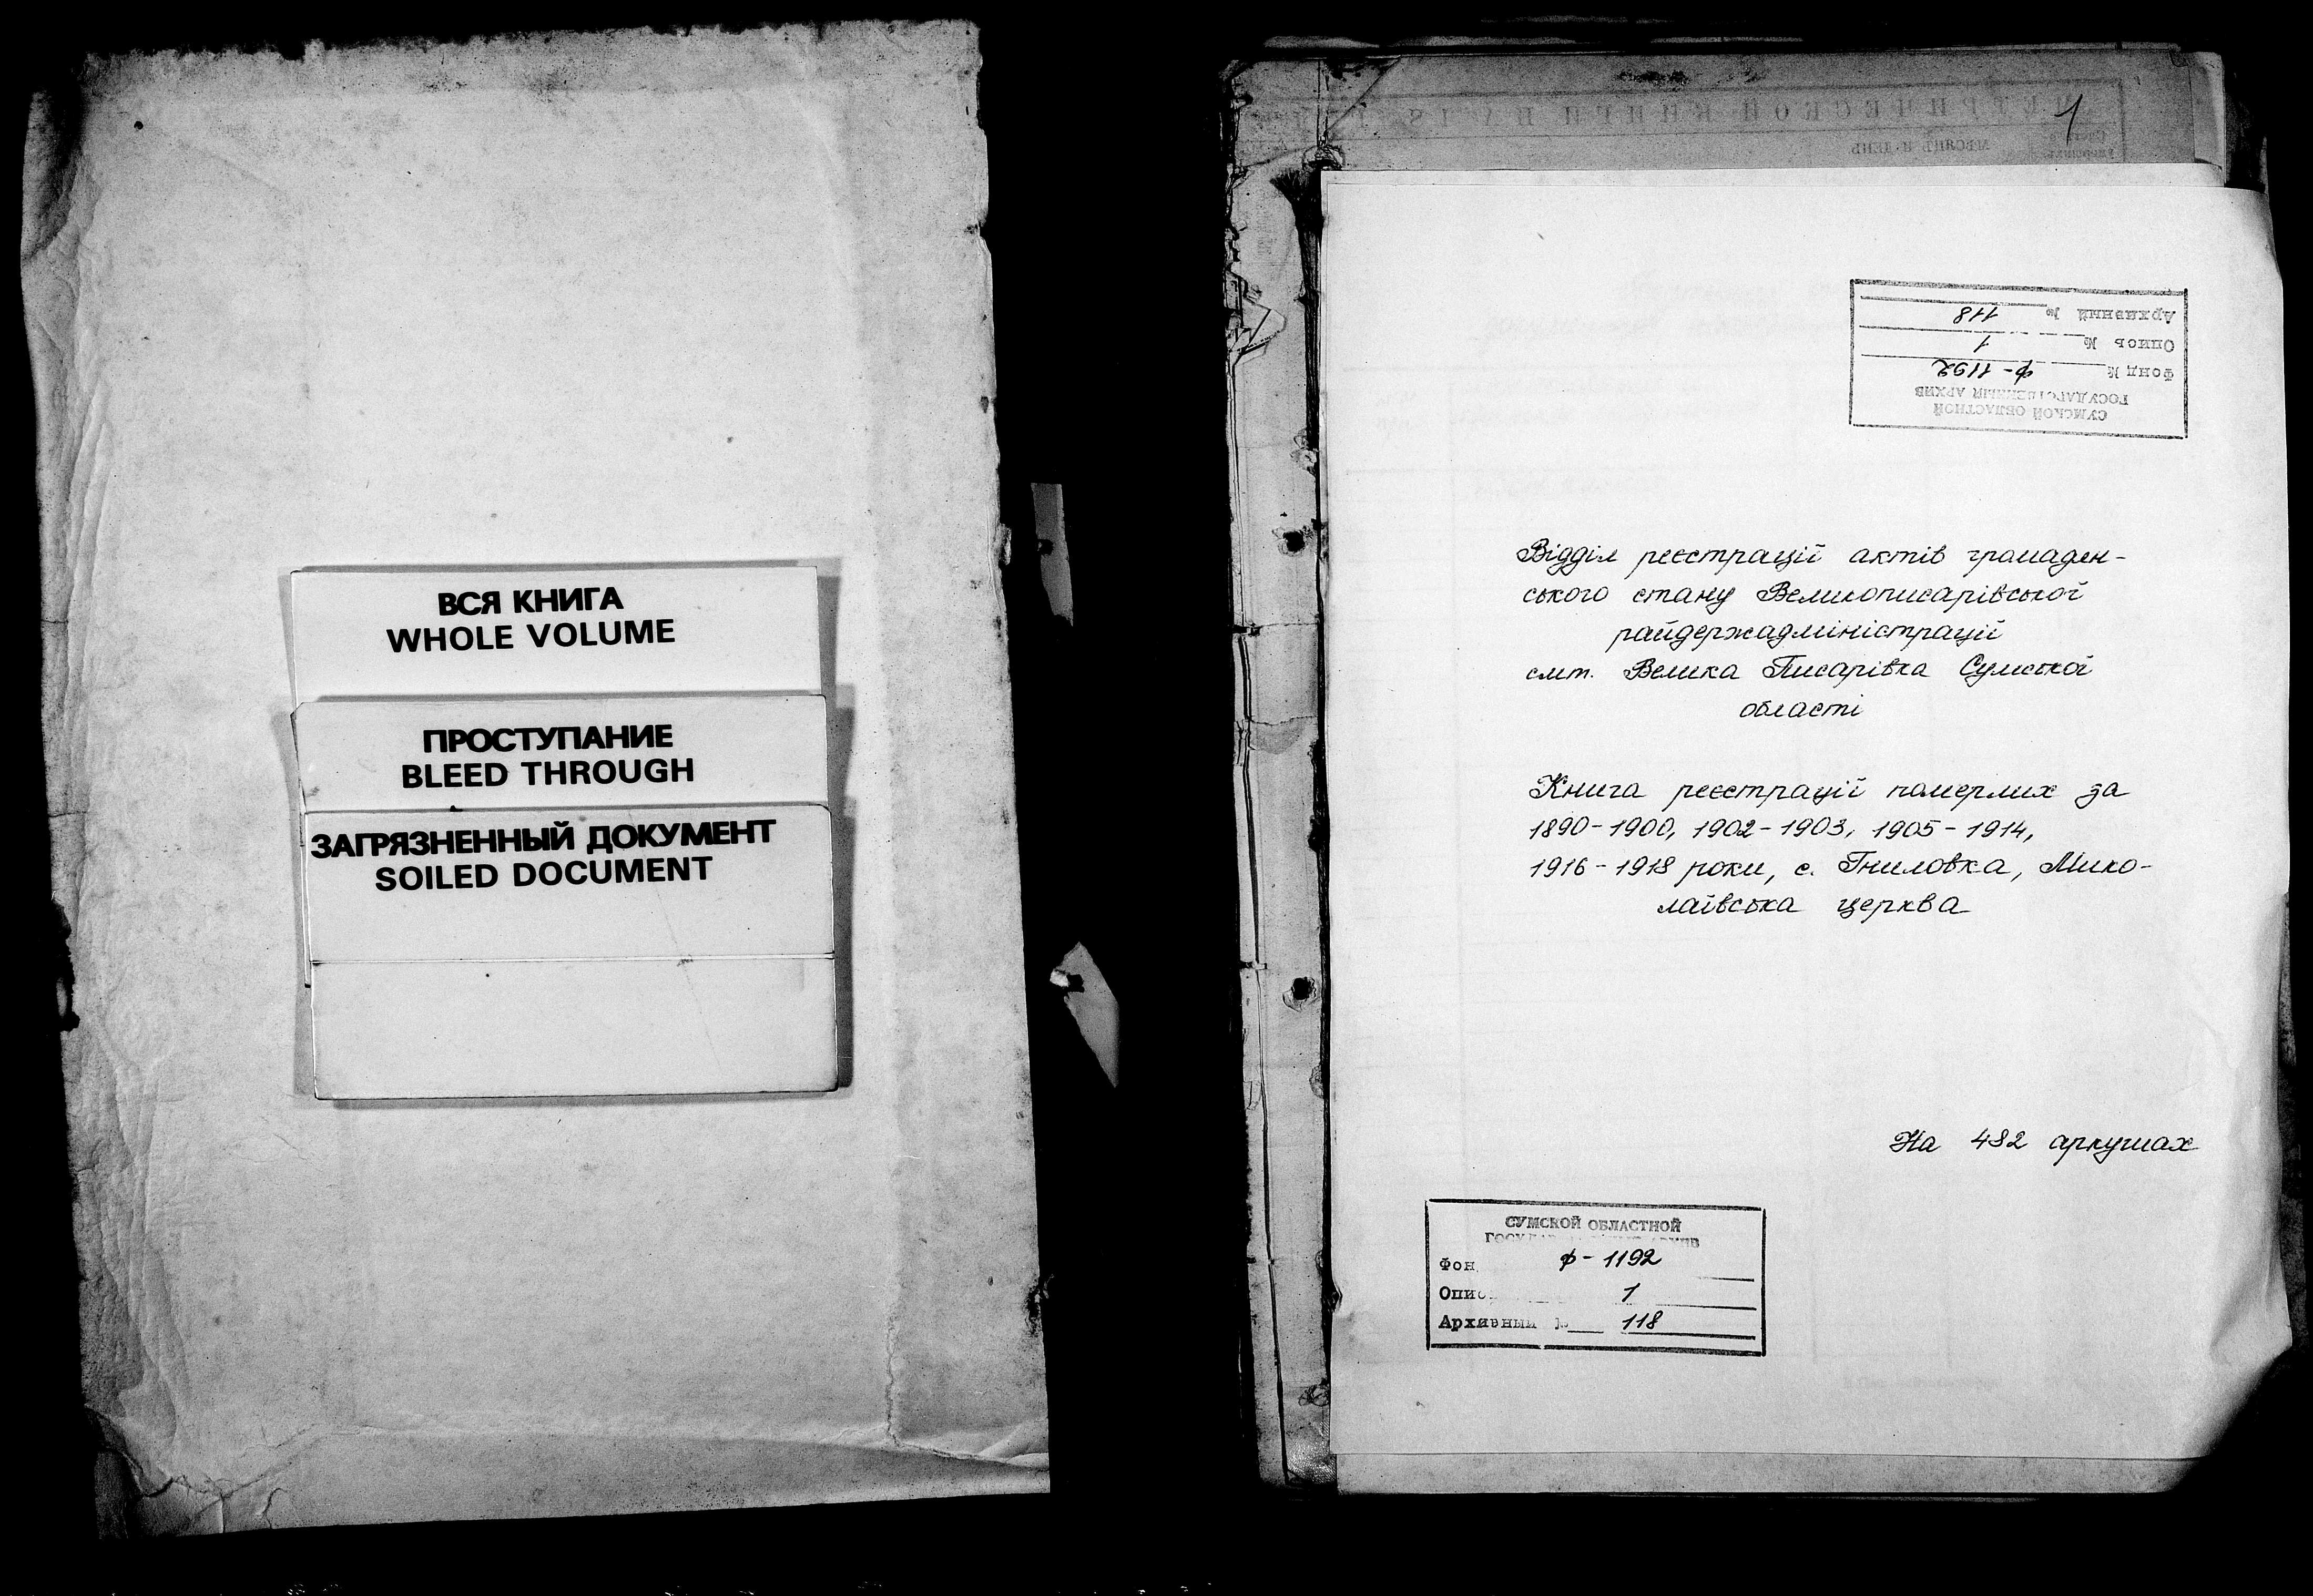 ВСЯ КНИГА
WHOLE VOLUME
ПРОСТУПАНИЕ
BLEED THROUGH
ЗАГРЯЗНЕННЫЙ ДОКУМЕНТ
SOILED DOCUMENT
МЕТРИЧЕСКОЙ КНИГИ НА 181
МѢСЯЦЪ И ДЕНЬ
1
СУМСКОЙ ОБЛАСТНОЙ
ГОСУДАРСТВЕННЫЙ АРХИВ
Фонд № Ф-1192
Опись № 1
Архивный № 118
Відділ реєстрації актів громадян-
ського стану Великописарівської
райдержадміністрації
смт. Велика Писарівка Сумської
області
Книга реєстрації померлих за
1890-1900, 1902-1903, 1905-1914,
1916-1918 роки, с. Гниловка, Мико-
лаївська церква
На 482 аркушах
СУМСКОЙ ОБЛАСТНОЙ
Фон Ф-1192
Опис 1
Архивный 118